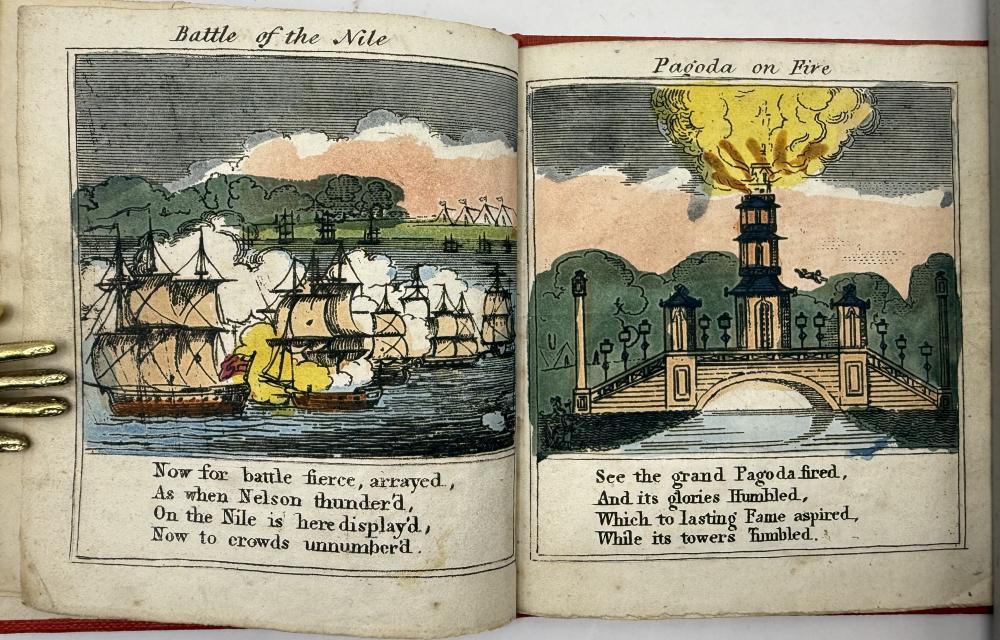 Battle of the Nile
Now for battle fierce, arrayed,
As when Nelson thunder'd,
On the Nile is here display'd,
Now to crowds unnumber'd.
Pagoda on Fire
See the grand Pagoda fired,
And its glories Humbled,
Which to lasting Fame aspired,
While its towers Tumbled.